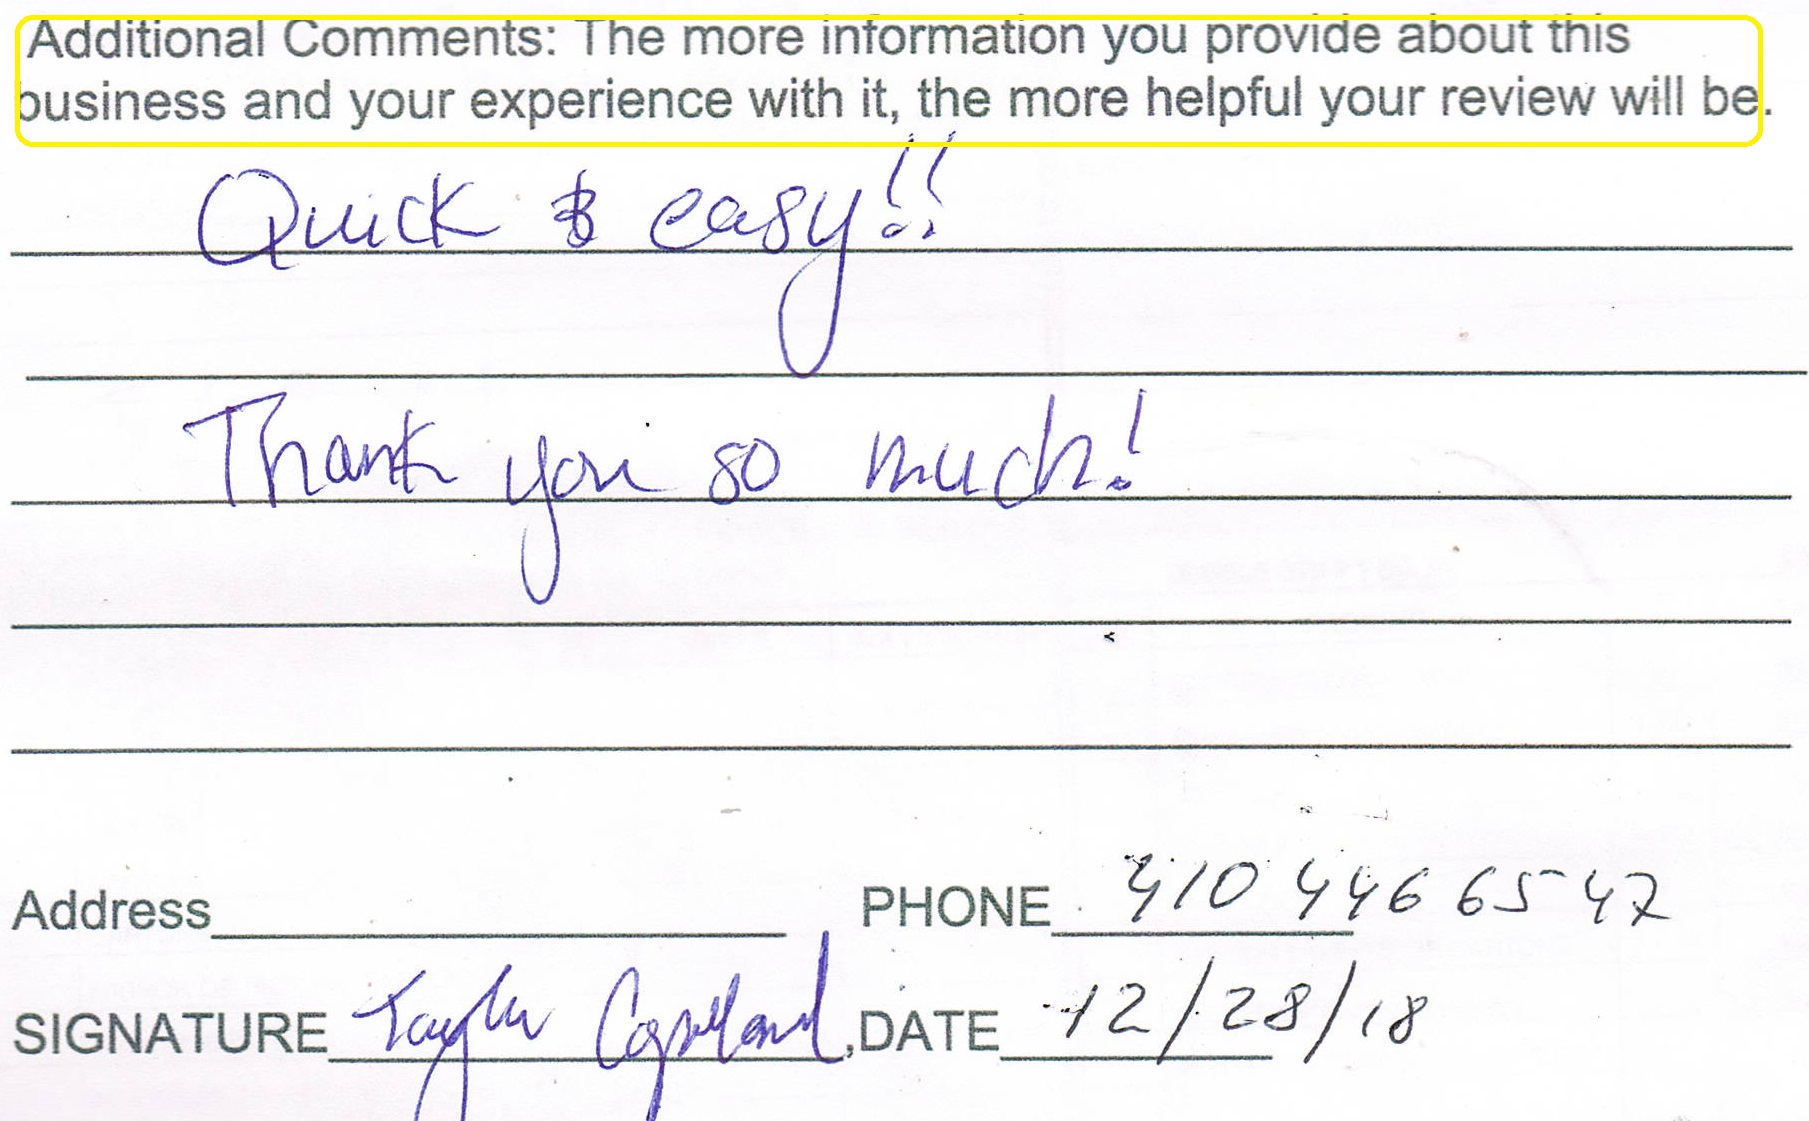 Additional Comments: The more information you provide about this
business and your experience with it, the more helpful your review will be.
Quick & easy!!
Thank you so much!
Address PHONE 410 446 6547
SIGNATURE Taylor Copeland, DATE 12/28/18